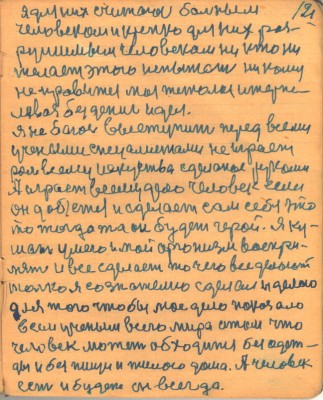 121
я для них считаюсь больным
человеком и крепко для них раз
рушимым человеком никто ни
желает этого испытать никому
не нравится моя
идея.
Я не боюсь выступить перед всеми
учеными специалистами не играет
роль всему искуства сделаное руками
А играет всему дело человек если
он добется и сделает сам себя это
то тогда та он будет герой. Я ку
шать умею и мой организм воспри
мят и все сделает то чего все делают
только я сознательно сделал и делаю
для того чтобы мое дело показало
всем ученым всего мира о том что
человек может обходится без одеж
ды и без пищи и жилого дома. А человек
есть и будет он всегда.